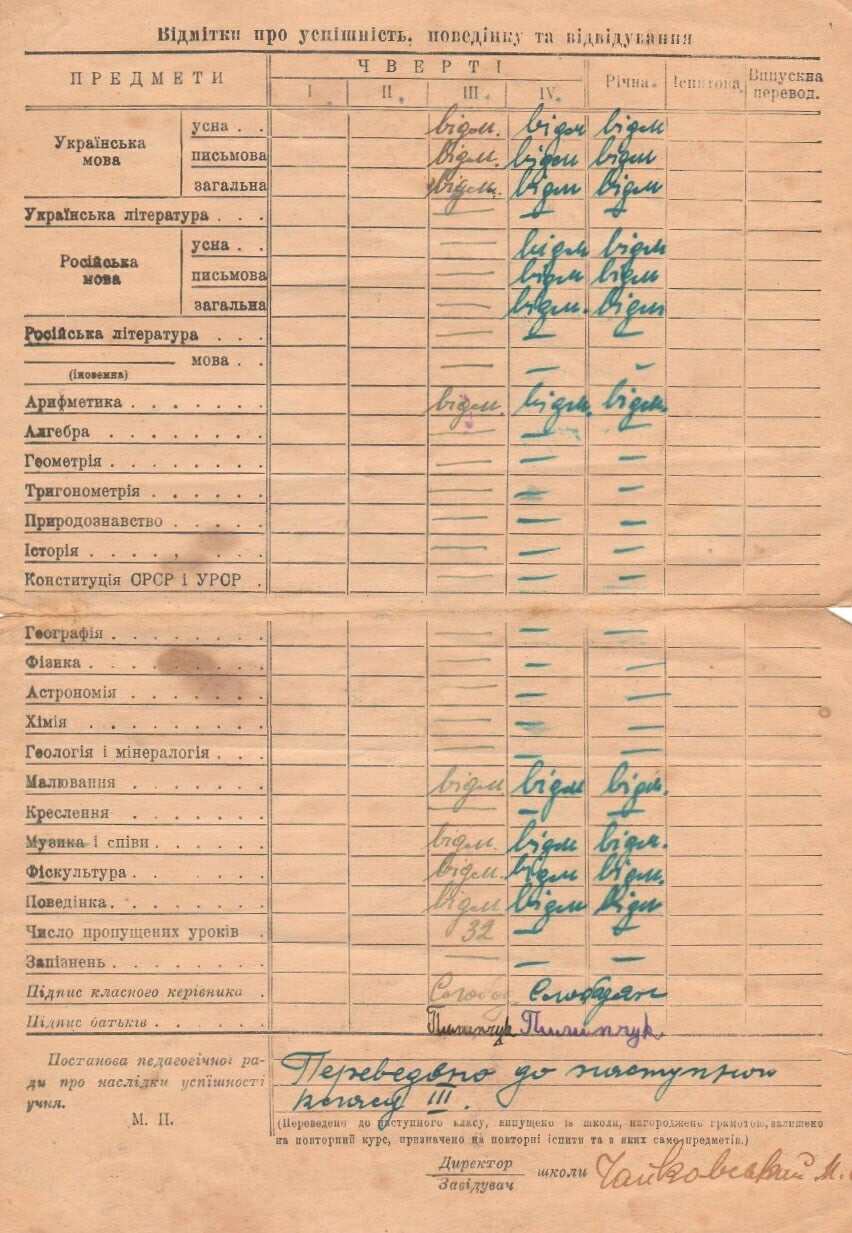 Відмітки про успішність, поведінку та відвідування
ПРЕДМЕТИ ЧВЕРТІ Річна. Іспитова. Випускна перевод.
I II III. IV.
Українська мова
усна . . відм. відм відм
письмова відм. відм відм
загальна відм. відм відм
Українська література . . . — — —
Російська мова
усна . . — відм відм
письмова — відм відм
загальна — відм. відм
Російська література . . . — — —
мова . . — — —
(іноземна)
Арифметика . . . . . . . відм. відм. відм.
Алгебра . . . . . . . . — — —
Геометрія . . . . . . . . — — —
Тригонометрія . . . . . . — — —
Природознавство . . . . . — — —
Історія . . . . . . . . . — — —
Конституція СРСР і УРСР . — — —
Географія . . . . . . . . — — —
Фізика . . . . . . . . . — — —
Астрономія . . . . . . . — — —
Хімія . . . . . . . . . — — —
Геологія і мінералогія . . . — — —
Малювання . . . . . . . відм відм відм.
Креслення . . . . . . . — — —
Музика і співи . . . . . . відм. відм відм.
Фіскультура . . . . . . . відм. відм відм.
Поведінка . . . . . . . . відм відм відм
Число пропущених уроків . 32 — —
Запізнень . . . . . . . . — —
Підпис класного керівника . Слобод Слободян
Підпис батьків . . . . . . Пилипчук Пилипчук
Постанова педагогічної ра-
ди про наслідки успішності
учня.
М. П.
Переведено до наступного
класу III.
(Переведено до наступного класу, випущено із школи, нагороджено грамотою, залишено
на повторний курс, призначено на повторні іспити та в яких саме предметів.)
Директор
Завідувач школи Чайковський М.